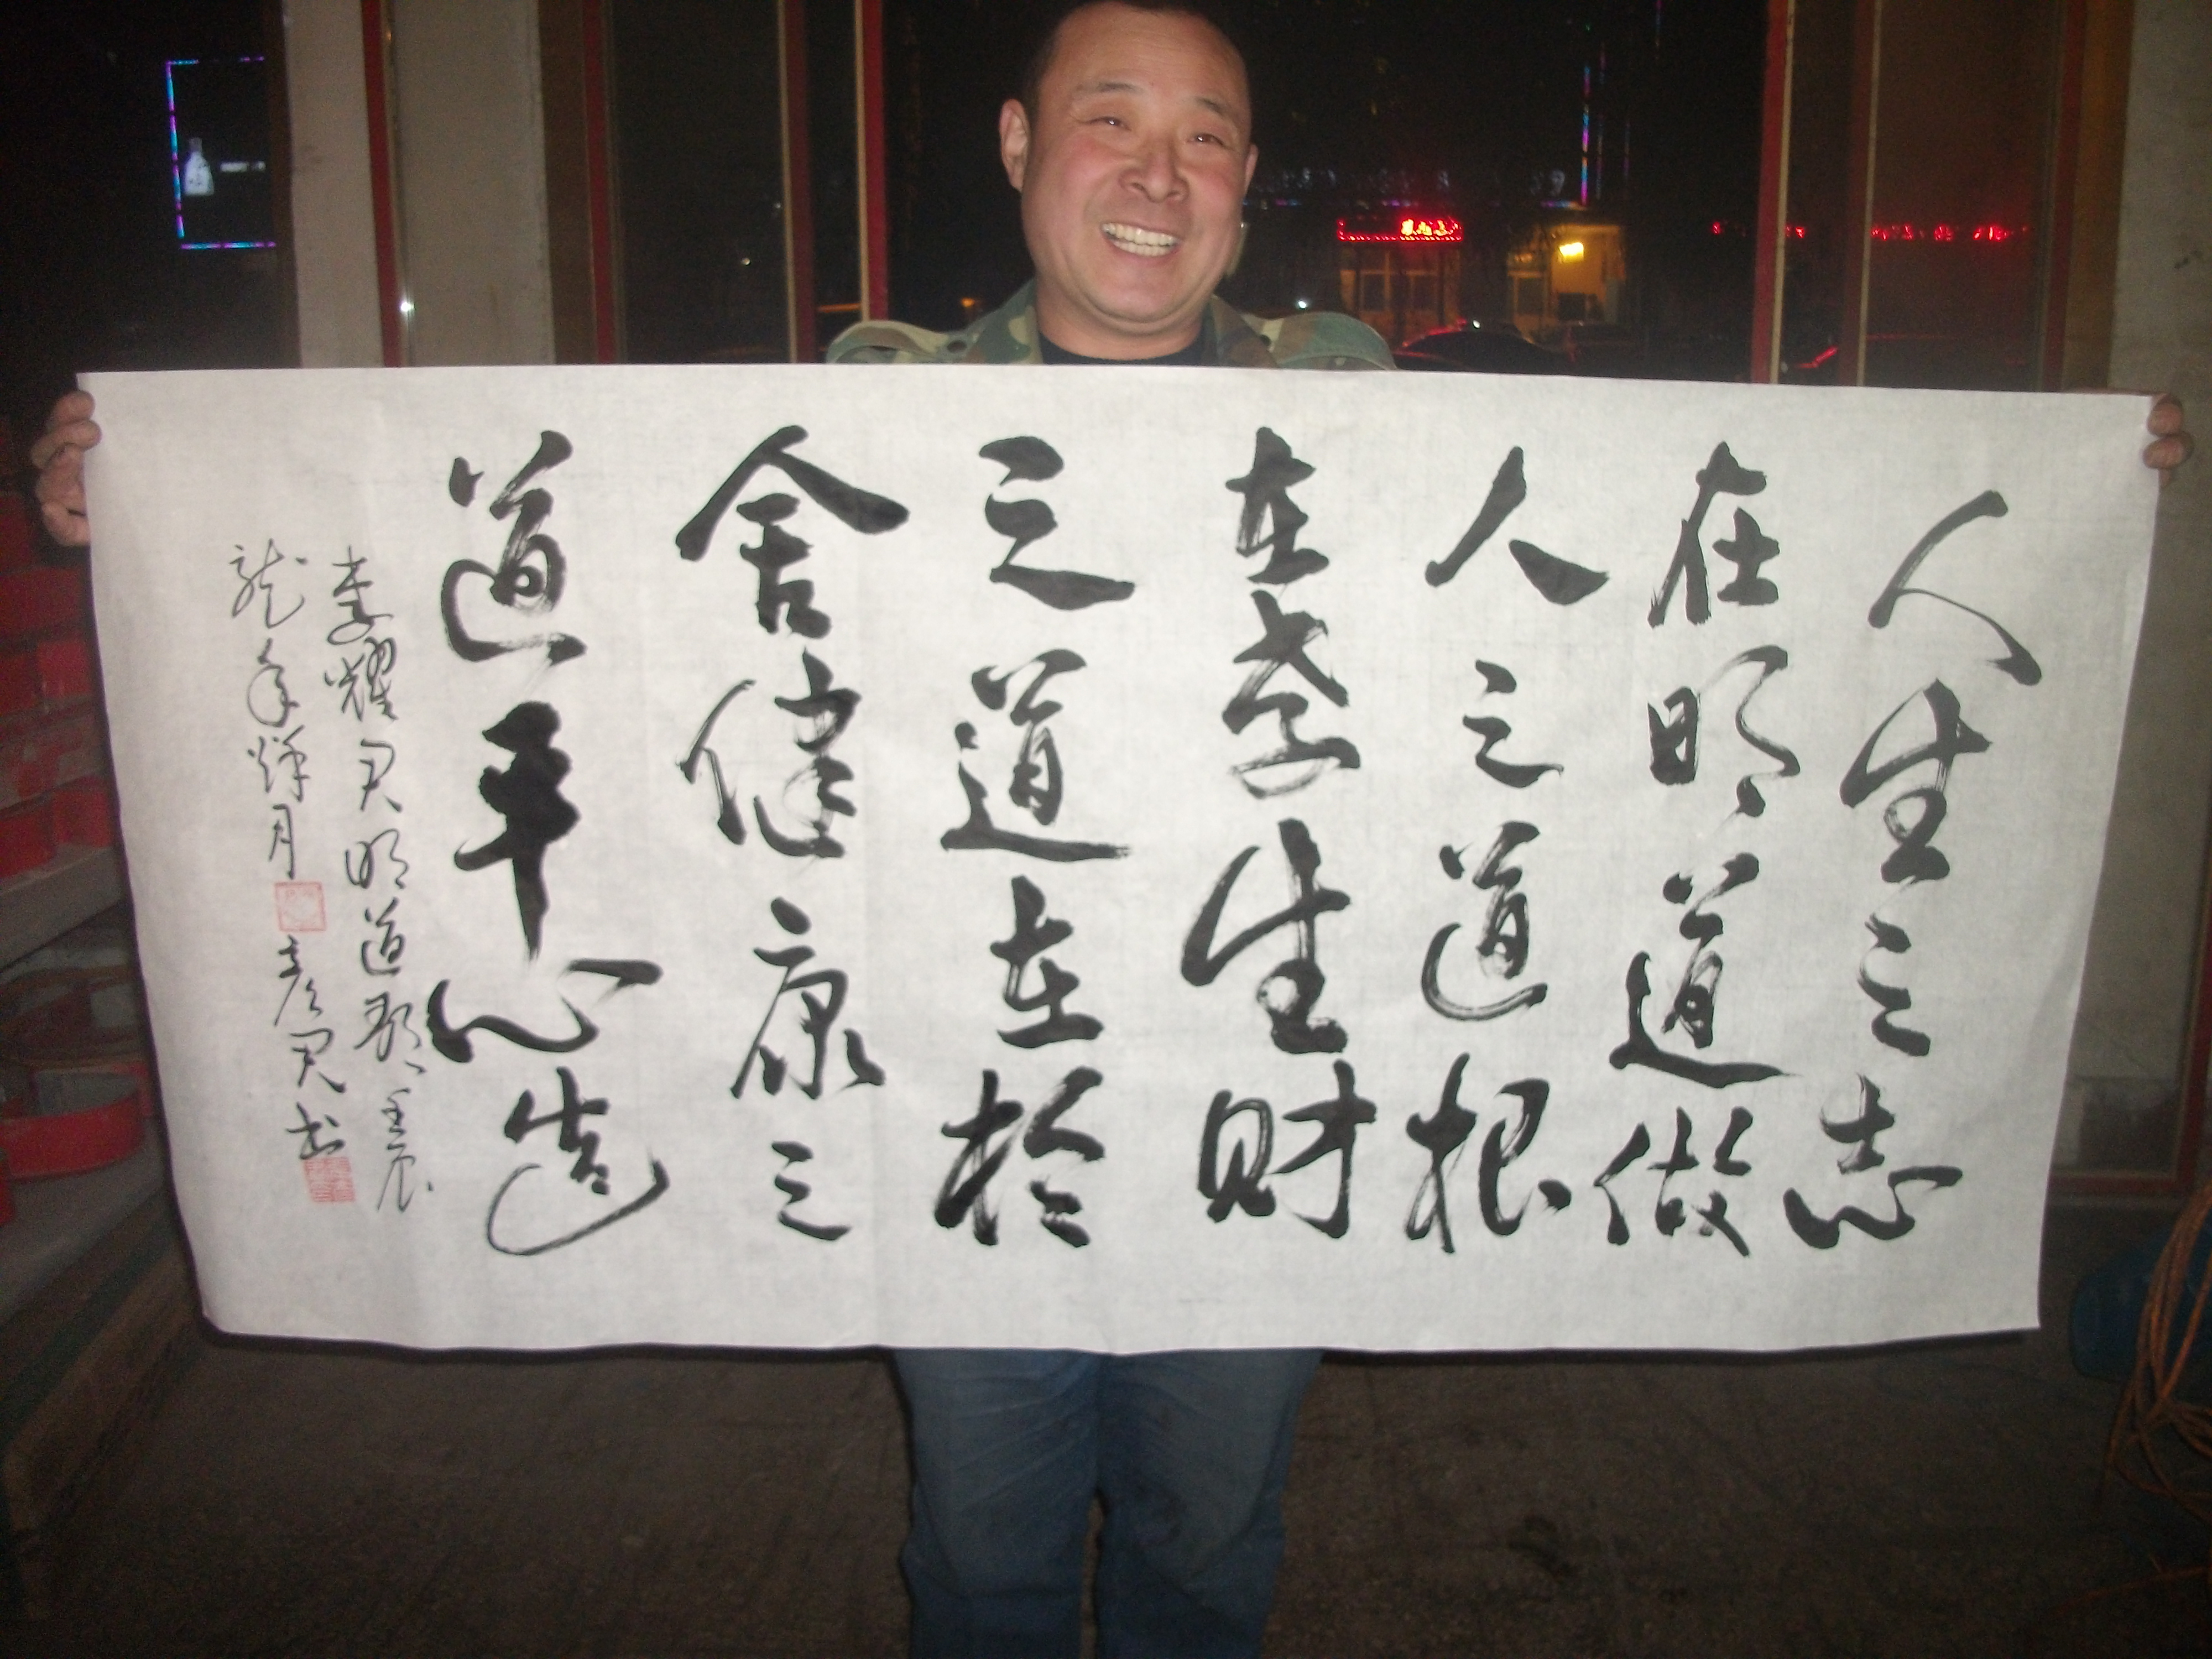 人生之志
在明道做
人之道根
在孝生财
之道在於
舍健康之
道平心造
李耀君明道歌壬辰
龙年 月 彦君书